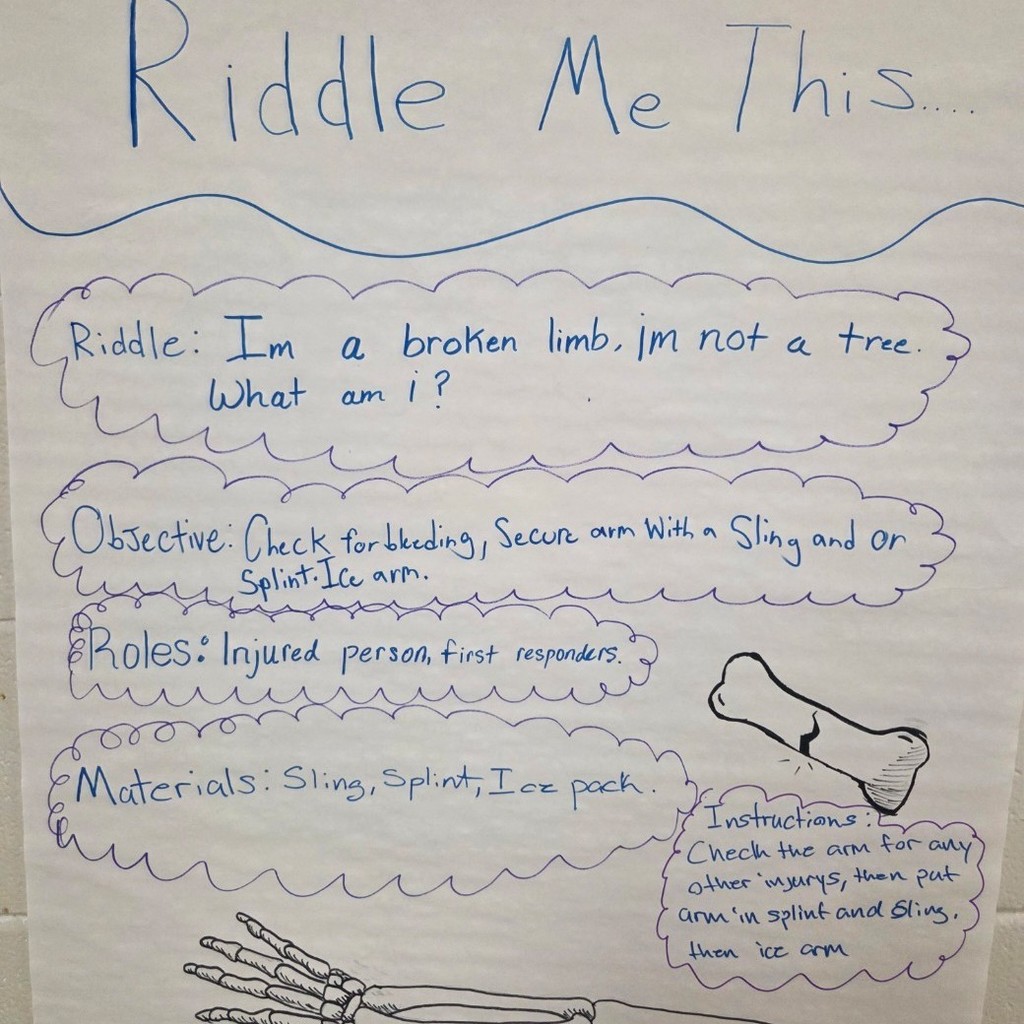 Riddle Me This....
Riddle: Im a broken limb. im not a tree.
What am i?
Objective: Check for bleeding, Secure arm With a Sling and or
Splint. Ice arm.
Roles: Injured person, first responders.
Materials: Sling, Splint, Ice pack.
Instructions:
Check the arm for any
other injurys, then put
arm in splint and Sling.
then ice arm